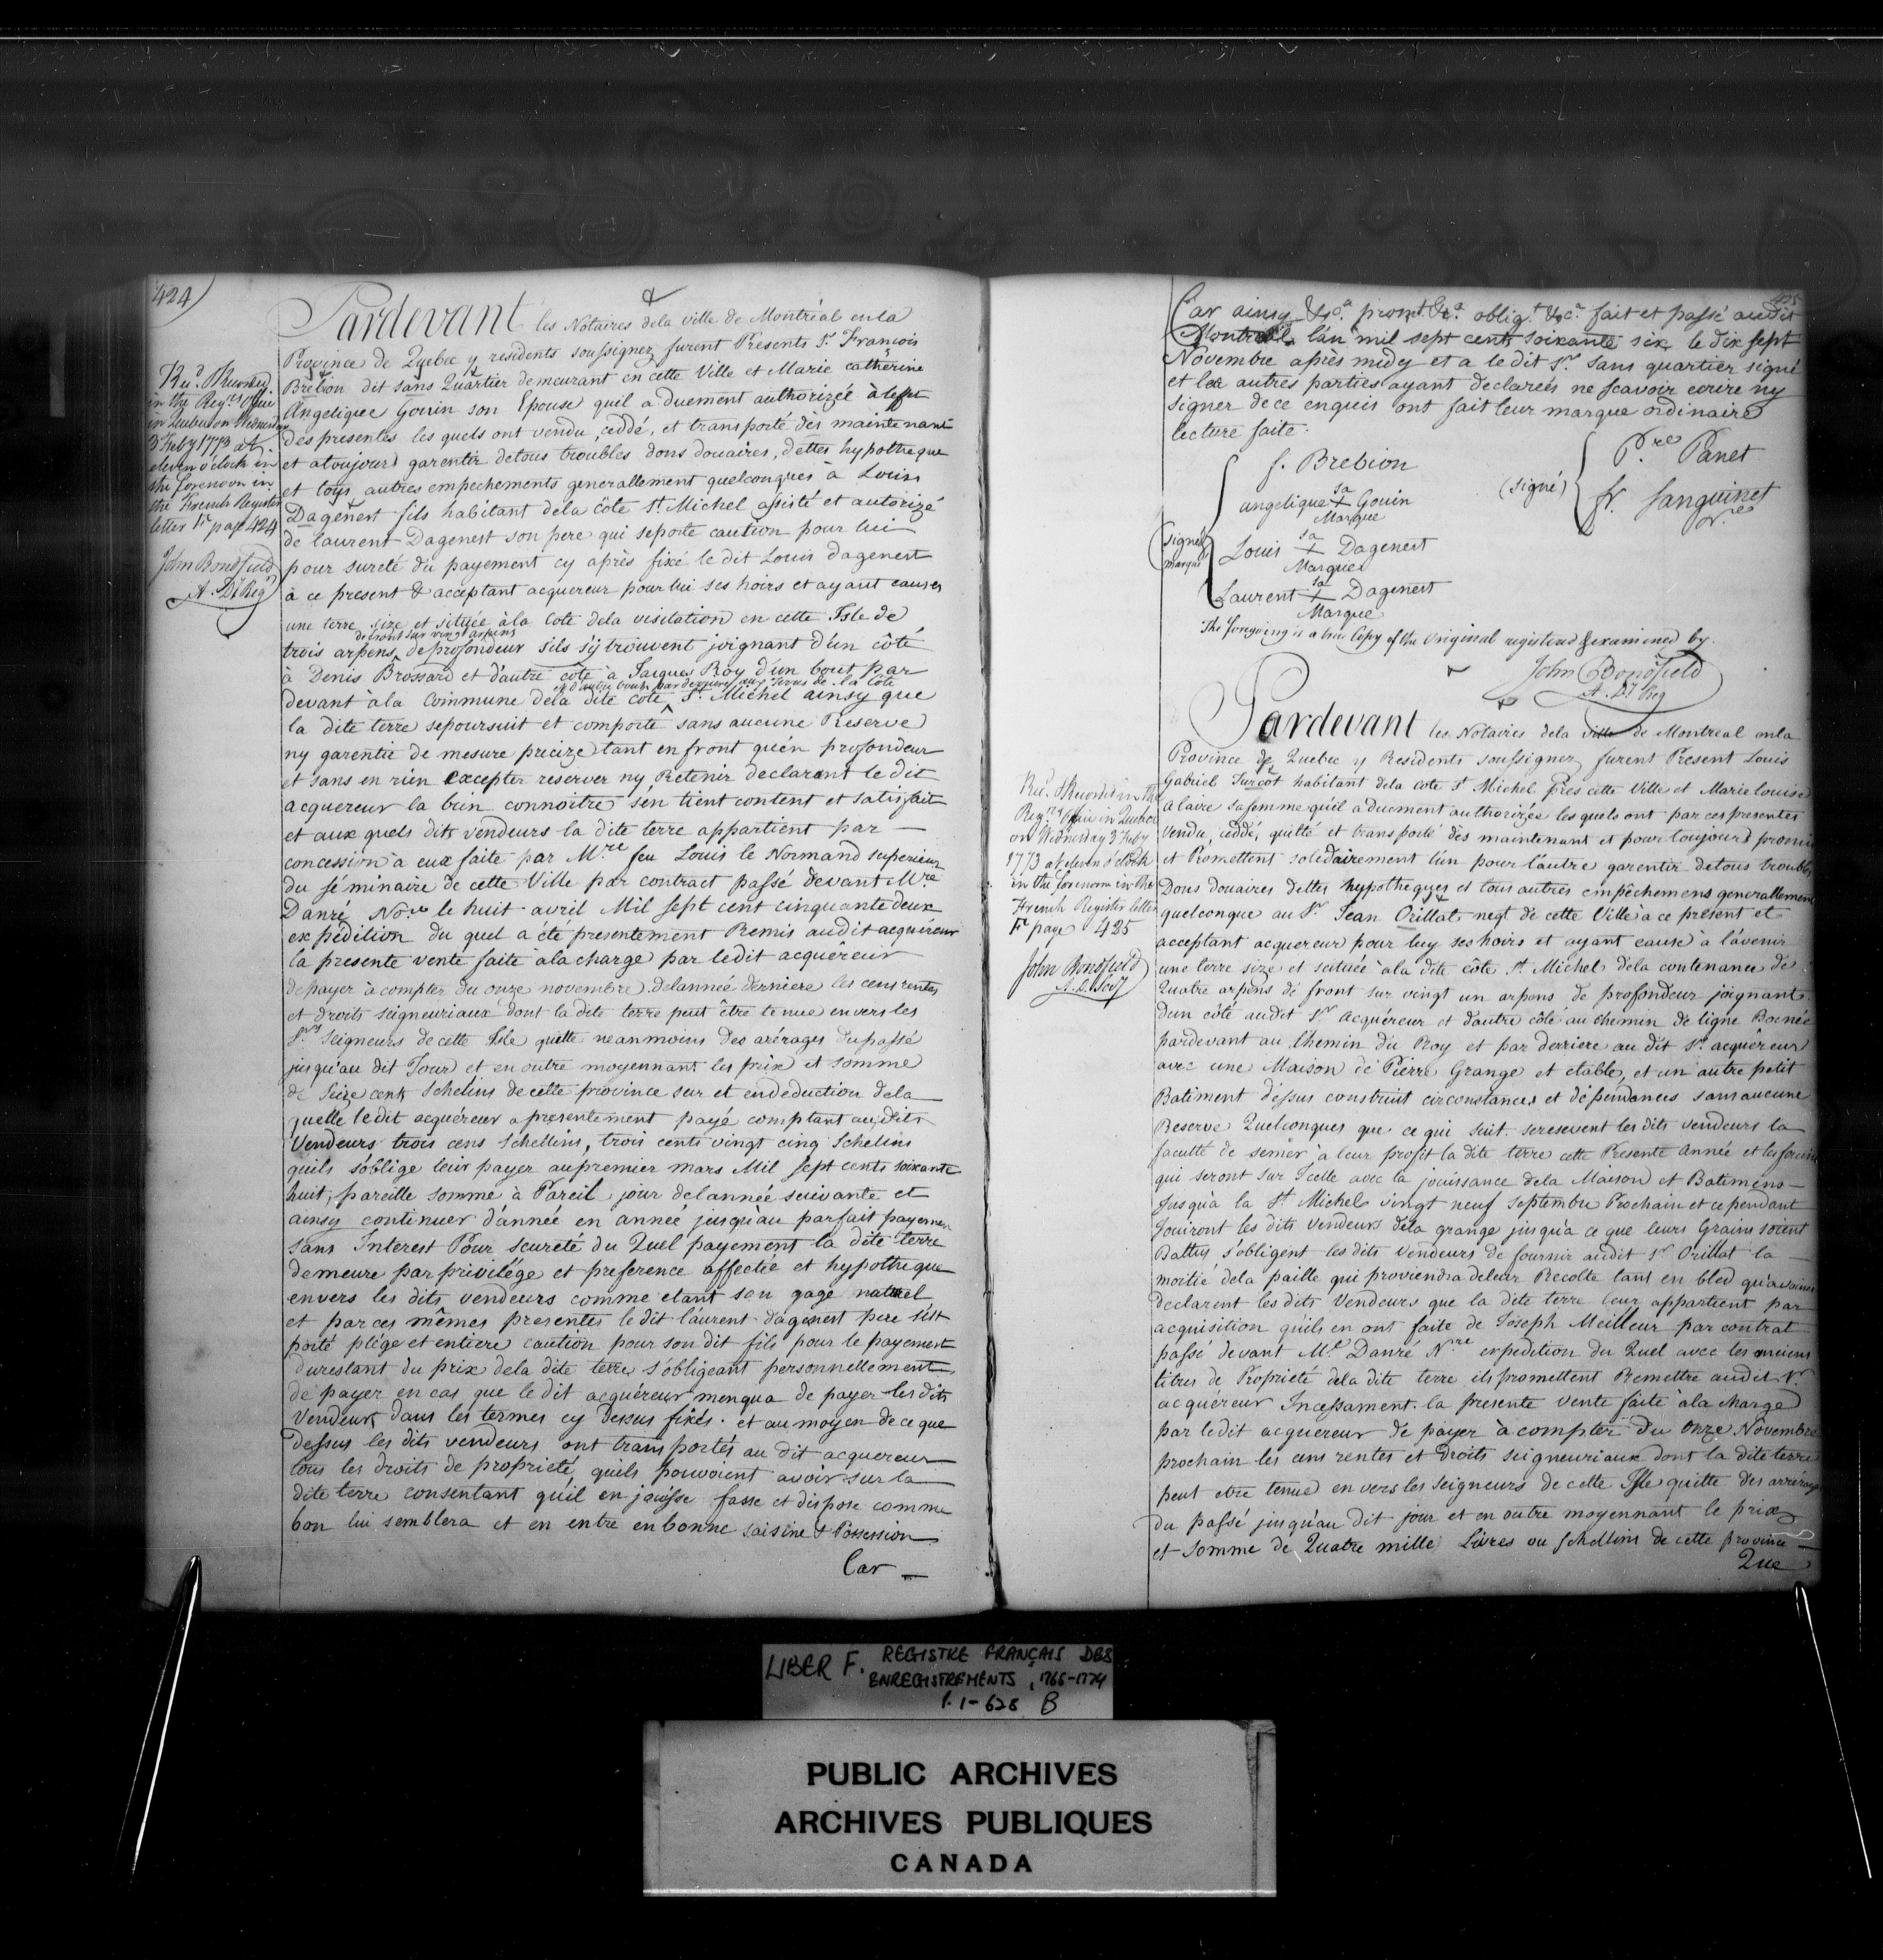 424)
Pardevant les Notaires dela ville de Montréal en la
Province de Quebec y residents soussignez furent Presents Sr. François
Brebion dit sans Quartier demeurant en cette Ville et Marie catherine
Angelique Gouin son Epouse quel a duement authorizée à leffet
des presentes les quels ont vendu, ceddé, et transporté dès maintenant
et atoujours garentir detous troubles dons douaires, dettes hypotheque
et tous autres empechements generallement quelconques à Louis
Dagenest fils habitant dela côte St. Michel assisté et autorizé
de laurent Dagenest son pere qui seporte caution pour lui
pour sureté du payement cy après fixé le dit Louis dagenest
à ce present & acceptant acquereur pour lui ses hoirs et ayant causes
une terre size et située àla Cote dela visitation en cette Isle de
de front sur vingt arpens
trois arpens de profondeur s'ils s'y trouvent joignant d'un côté
à Denis Brossard et d'autre côté à Jacques Roy d'un bout par
et d'autre bout par derriere aux terres de la Côte
devant àla Commune dela dite cote ^ St. Michel ainsy que
la dite terre sepoursuit et comporte sans aucune Reserve
ny garentie de mesure precize tant en front qu'en profondeur
et sans en rien excepter reserver ny Retenir declarant le dit
acquereur la bien connoitre s'en tient content et satisfait
et aux quels dits vendeurs la dite terre appartient par
concession à eux faite par Mre. feu Louis le Normand superieur
du séminaire de cette Ville par contract passé devant Mre.
Danré Nore le huit avril Mil sept cent cinquante deux
expédition du quel a été presentement Remis audit acquéreur
la presente vente faite àla charge par ledit acquéreur
depayer à compter du onze novembre delannée derniere les cens rentes
et droits seigneuriaux dont la dite terre peut être tenue envers les
Srs. Seigneurs de cette Isle quitte neanmoins des arérages dupassé
jusqu'au dit Jour et en outre moyennant les prix et somme
de Seize cents Schelins de cette province sur et endeduction dela
quelle ledit acquéreur a presentement payé comptant auxdits
Vendeurs trois cens Schellins, trois cents vingt cinq Schelins
quils s'oblige leur payer aupremier mars Mil sept cents soixante
huit, pareille somme à Pareil jour delannée suivante et
ainsy continuer d'année en année jusqu'au parfait payement
sans Interest Pour seureté du Quel payement la dite terre
demeure par privilége et preference affectée et hypotheque
envers les dits vendeurs comme etant son gage naturel
et par ces mêmes presentes le dit laurent dagenest pere s'est
porté plége et entiere caution pour son dit fils pour le payement
durestant du prix dela dite terre s'obligeant personnellement
de payer en cas que le dit acquéreur menqua de payer les dits
Vendeurs dans les termes cy dessus fixés. et au moyen de ce que
dessus les dits vendeurs ont transportés au dit acquereur
tous les droits de proprieté, quils pouvoient avoir sur la
dite terre consentant qu'il en jouisse fasse et dispose comme
bon lui semblera et en entre en bonne saisine & Possession
Car
Recd. & Recorded
in the Regrs. Office
in Quebec on Wednesday
3 Feby 1773 at
eleven o'clock in
the forenoon in
the French Register
letter F. page 424
John Bonsfield
A. Dy Reg
425
Car ainsy &ca. promt. &ca. obligt. &ca. fait et passé audit
Montreal l'an mil sept cents soixante six le dix sept
Novembre après midy et a le dit Sr. sans quartier signé
et les autres parties ayant declarées ne scavoir ecrire ny
signer de ce enquis ont fait leur marque ordinaire
lecture faite.
f. Brebion
angelique sa + Marque Gouin
(signé marqué
Louis sa + Marque Dagenest
Laurent sa + Marque Dagenest
(signé)
Pre. Panet
fr. Sanguinet
Nres
The foregoing is a true Copy of the Original registered & examined by.
John Bonsfield
A. Dy Reg
Pardevant les Notaires dela ville de Montreal en la
Province de Quebec y Residents soussignez furent Present Louis
Gabriel Turcot habitant dela cote St. Michel près cette Ville et Marie louise
alaire safemme quil a duement authorizée les quels ont par ces presentes
Vendu, ceddé, quitté et transporté dès maintenant et pour toujours promis
et Promettent solidairement l'un pour l'autre garentir detous troubles
Dons douaires dettes hypotheques et tous autres empêchemens generallement
quelconque au Sr. Jean Orillat negt. de cette Ville à ce présent et
acceptant acquereur pour luy ses hoirs et ayant cause à l'avenir
une terre size et scituée àla dite côte St. Michel dela contenance de
Quatre arpens de front sur vingt un arpens de profondeur joignant
d'un côté audit Sr acquéreur et d'autre côté au chemin de ligne Bornée
pardevant au Chemin du Roy et par derriere au dit Sr. acquéreur
avec une Maison de Pierre Grange et etable, et un autre petit
Batiment dessus construit circonstances et dépendances sans aucune
Reserve Quelconques que ce qui suit. sereservent les dits vendeurs la
faculté de semer à leur profit la dite terre cette Presente année et les foins
qui seront sur Icelle avec la jouissance dela Maison et Batimens
Jusqu'a la St. Michel vingt neuf Septembre Prochain et cependant
Jouiront les dits vendeurs dela grange jusqu'a ce que leurs Grains soient
Battus s'obligent les dits vendeurs de fournir audit Sr. Orillat la
moitié dela paille qui proviendra deleur Recolte tant en bled qu'avoines
declarent les dits Vendeurs que la dite terre leur appartient par
acquisition quils en ont faite de Joseph Meilleur par contrat
passé devant Me. Danré Nre. expedition du Quel avec les anciens
titres de Proprieté dela dite terre ils promettent Remettre audit Sr.
acquéreur Incessament. la presente vente faite àla charge
par ledit acquereur de payer à compter du Onze Novembre
prochain les cens rentes et droits seigneuriaux dont la dite terre
peut etre tenue envers les seigneurs de cette Isle quitte des arrérages
du passé jusqu'au dit jour et en outre moyennant le prix
et somme de Quatre mille Livres ou Schellins de cette province
Que
Rec. & Recorded in the
Regrs. Office in Quebec
on Wednesday 3 Feby
1773 at eleven o'clock
in the forenoon in the
French Register letter
F. page 425
John Bonsfield
LIBER F. REGISTRE FRANÇAIS DES
ENREGISTREMENTS, 1765-1774
P. 1-628 B
PUBLIC ARCHIVES
ARCHIVES PUBLIQUES
CANADA